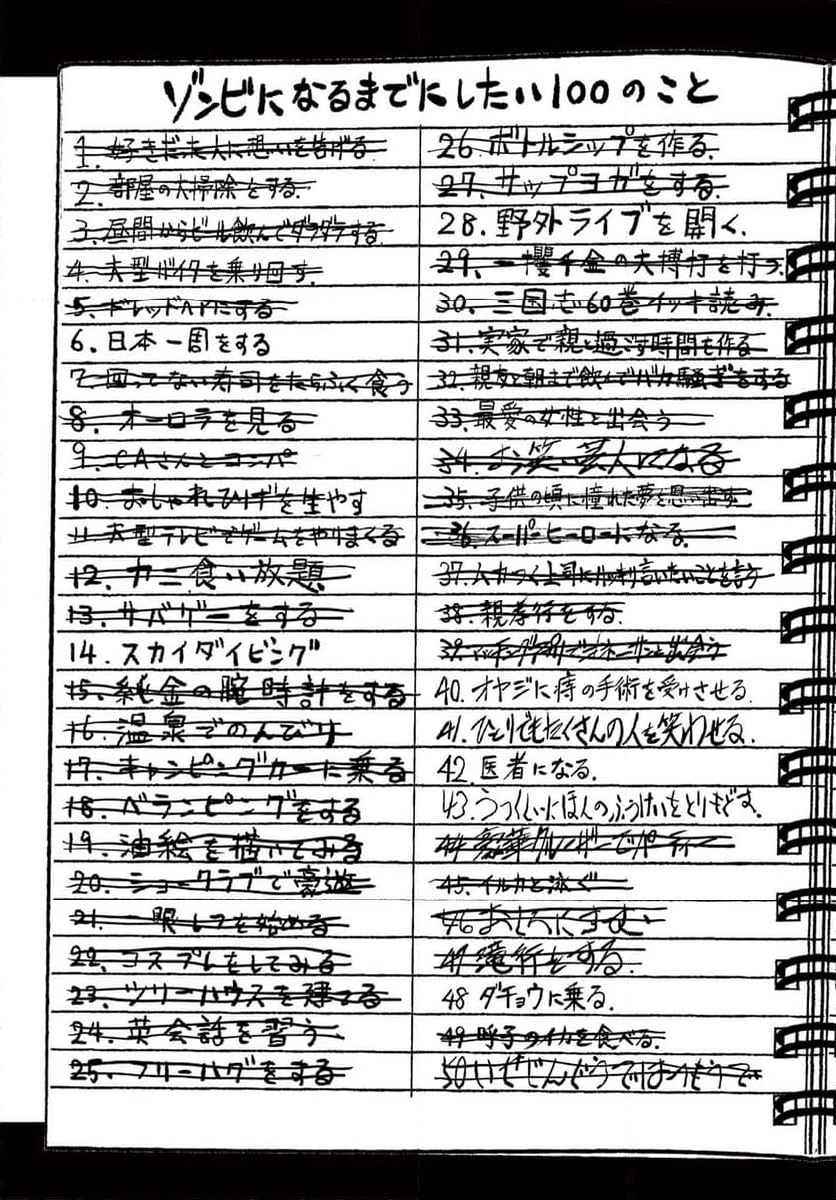 ゾンビになるまでにしたい100のこと
1. 好きだった人に想いを告げる
2. 部屋の大掃除をする.
3. 昼間からビール飲んでダラダラする
4. 大型バイクを乗り回す.
5. ドレッドヘアにする
6. 日本一周をする
7. 回ってない寿司をたらふく食う
8. オーロラを見る
9. CAさんとコンパ
10. おしゃれひげを生やす
11. 大型テレビでゲームをやりまくる
12. カニ食い放題
13. サバゲーをする
14. スカイダイビング
15. 純金の腕時計をする
16. 温泉でのんびり
17. キャンピングカーに乗る
18. ベランピングをする
19. 油絵を描いてみる
20. ショークラブで豪遊
21. 一眼レフを始める
22. コスプレをしてみる
23. ツリーハウスを建てる
24. 英会話を習う
25. フリーハグをする
26. ボトルシップを作る.
27. サップヨガをする
28. 野外ライブを開く.
29. 一攫千金の大博打を打つ
30. 三国志60巻イッキ読み.
31. 実家で親と過ごす時間を作る
32. 親友と朝まで飲んでバカ騒ぎをする
33. 最愛の女性と出会う
34. お笑い芸人になる
35. 子供の頃に憧れた夢を思い出す
36. スーパーヒーローになる.
37. ムカつく上司にハッキリ言いたいことを言う
38. 親孝行をする.
39. で と出会う
40. オヤジに痔の手術を受けさせる.
41. ひとりでもたくさんの人を笑わせる.
42. 医者になる.
43. うつくしいにほんのふうけいをとりもどす.
44. 豪華クルーザーでパーティー
45. イルカと泳ぐ
46
47 滝行をする.
48 ダチョウに乗る.
49 呼子のイカを食べる.
50